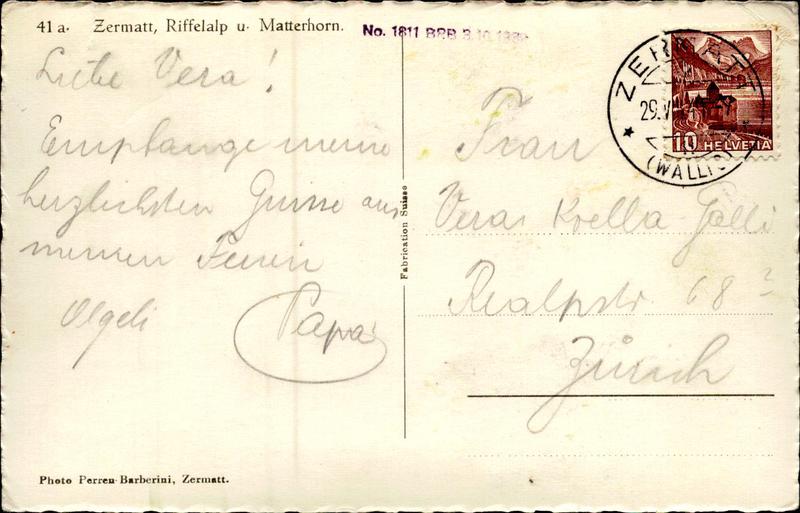 41 a. Zermatt, Riffelalp u. Matterhorn.
No. 1811 BRB 3.10.1939
Liebe Vera!
Empfange meine
herzlichsten Grüsse aus
meinen Ferien
Olgeli
Papa
Fabrication Suisse
ZERMATT
29.V
(WALLIS)
10 HELVETIA
Frau
Vera Koella-Galli
Realpstr 68
Zürich
Photo Perren-Barberini, Zermatt.